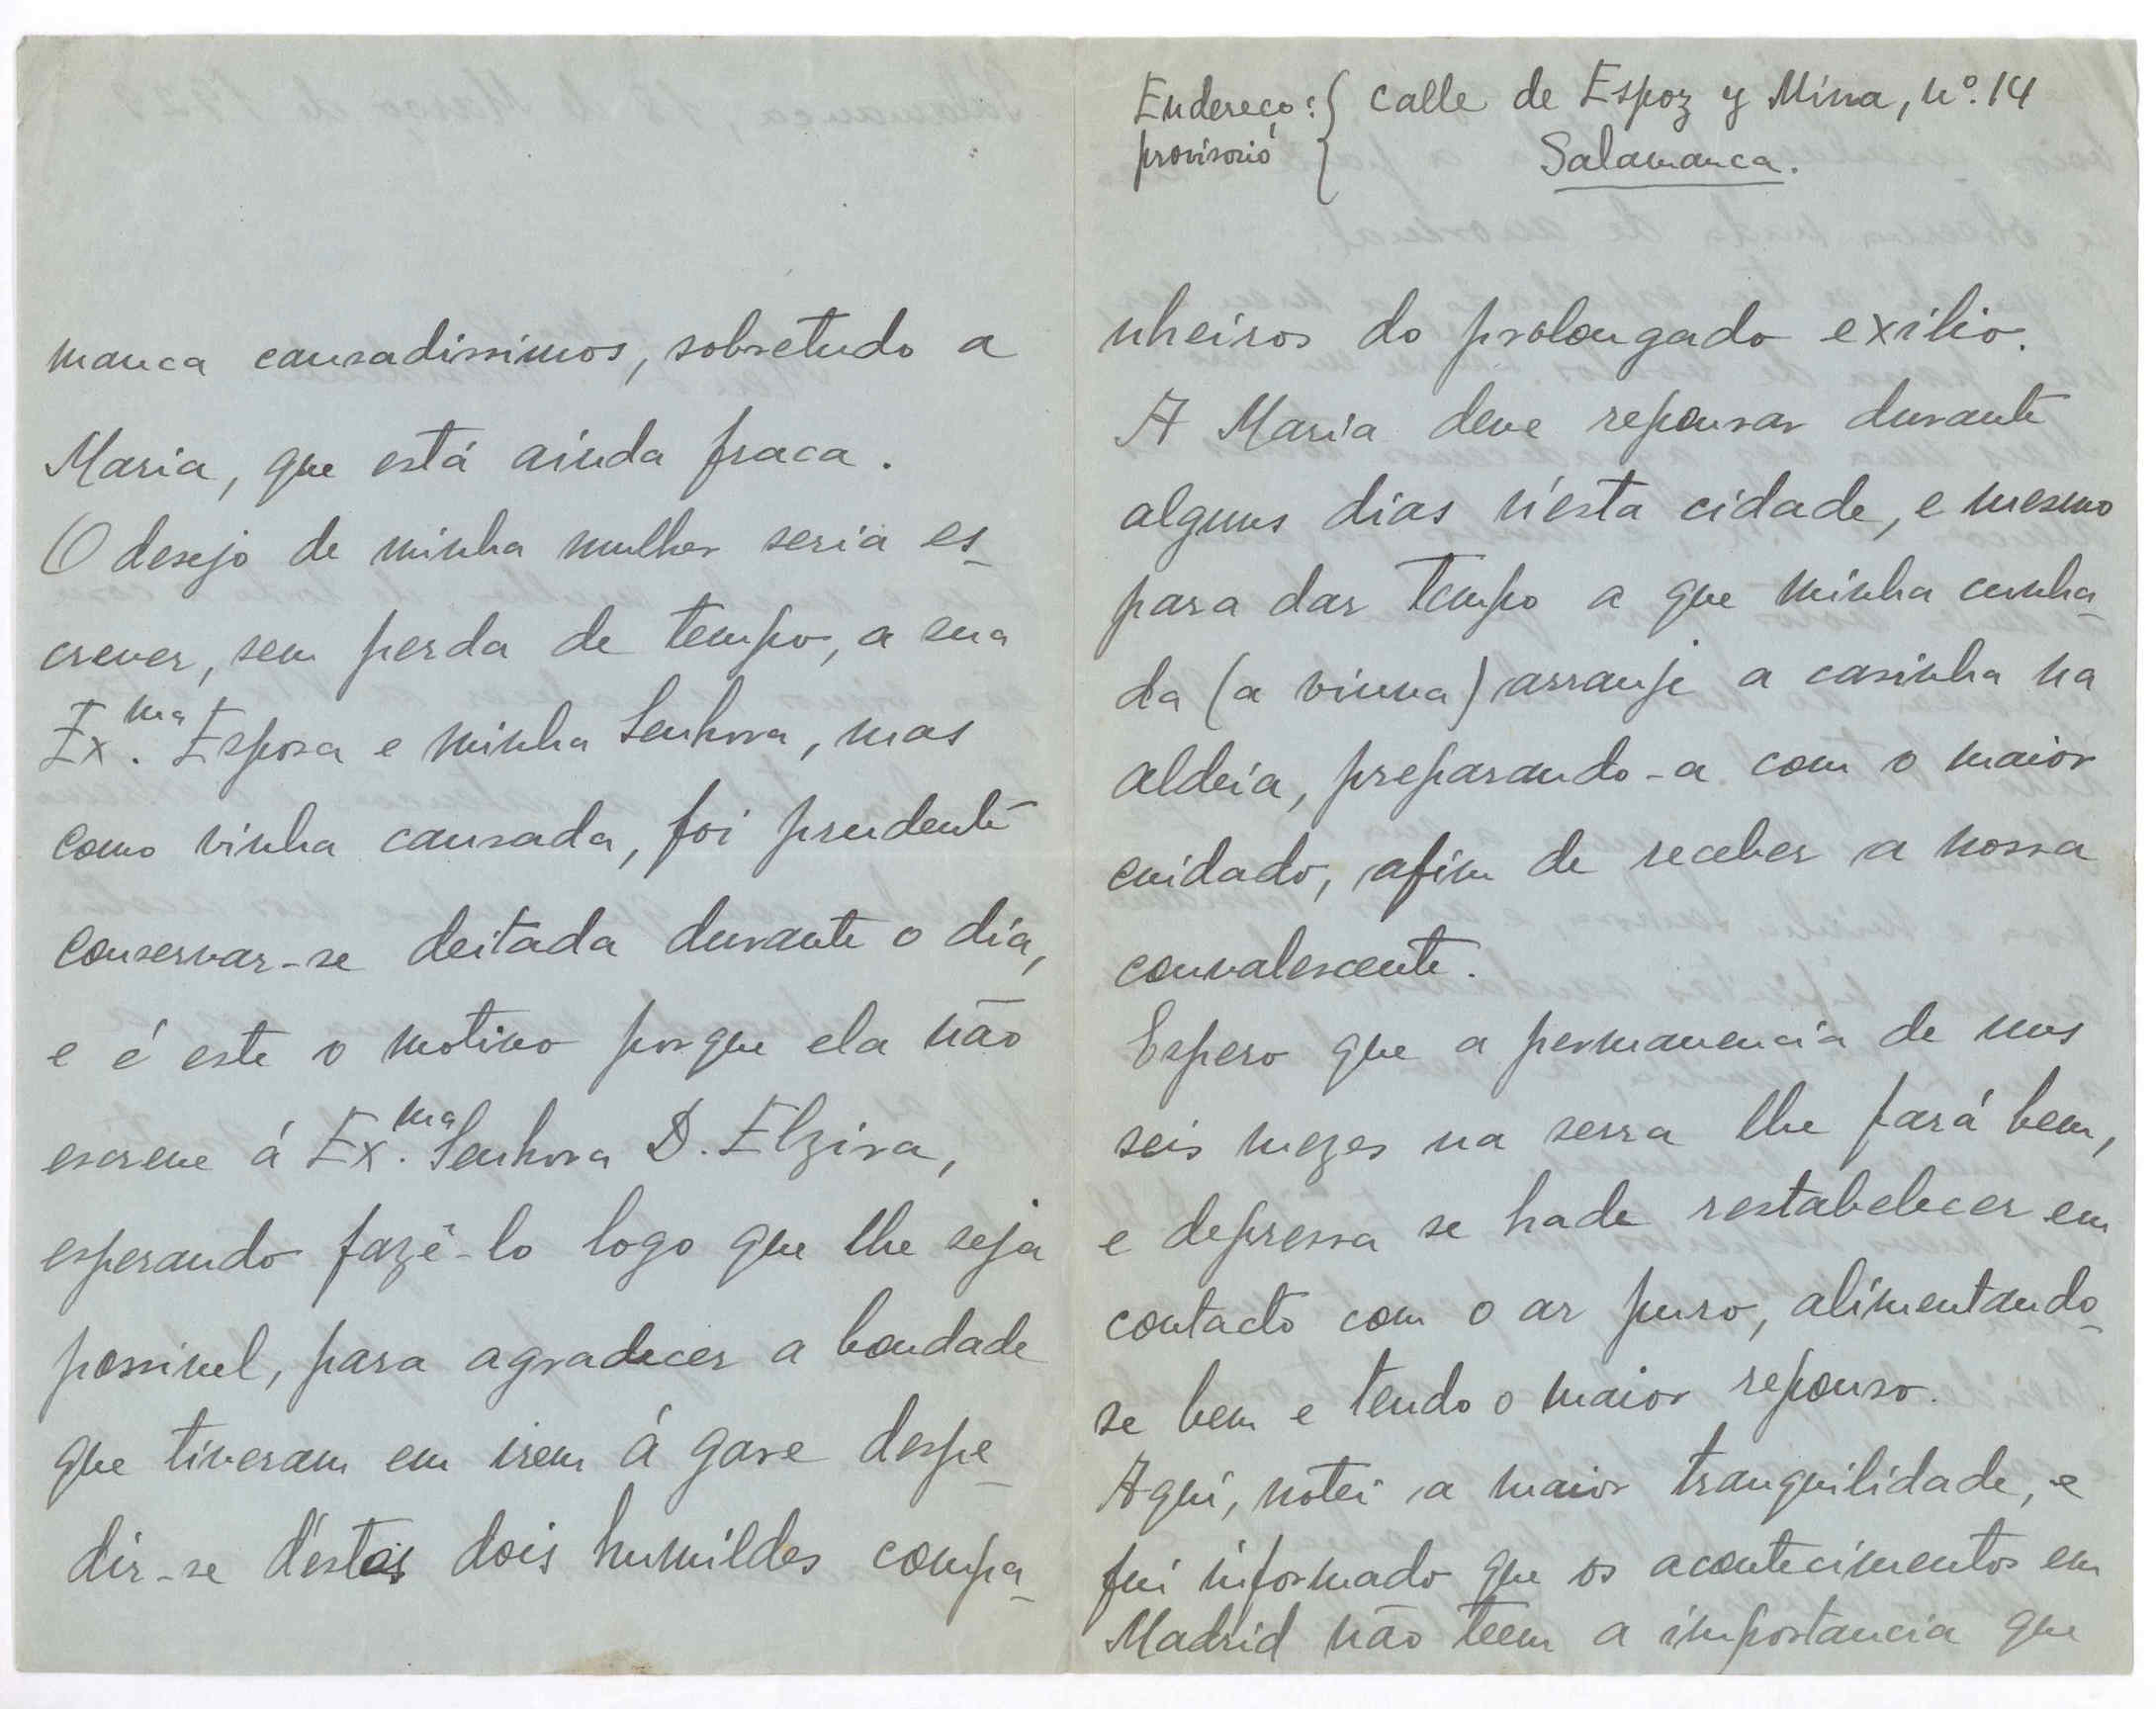 manca cansadissimos, sobretudo a
Maria, que está ainda fraca.
O desejo de minha mulher seria es-
crever, sem perda de tempo, a sua
Ex.ma Esposa e minha Senhora, mas
como vinha cansada, foi prudente
conservar-se deitada durante o dia,
e é este o motivo porque ela não
escreve á Ex.ma Senhora D. Elzira,
esperando fazê-lo logo que lhe seja
possivel, para agradecer a bondade
que tiveram em irem á gare despe-
dir-se d'estes dois humildes compa-
Endereço: { calle de Espoz y Mina, nº. 14
provisorio { Salamanca.
nheiros do prolongado exílio.
A Maria deve repousar durante
alguns dias n'esta cidade, e mesmo
para dar tempo a que minha cunha-
da (a viuva) arranje a casinha na
aldeia, preparando-a com o maior
cuidado, afim de receber a nossa
convalescente.
Espero que a permanencia de uns
seis mezes na serra lhe fará bem,
e depressa se hade restabelecer em
contacto com o ar puro, alimentando-
se bem e tendo o maior repouso.
Aqui, notei a maior tranquilidade, e
fui informado que os acontecimentos em
Madrid não teem a importancia que